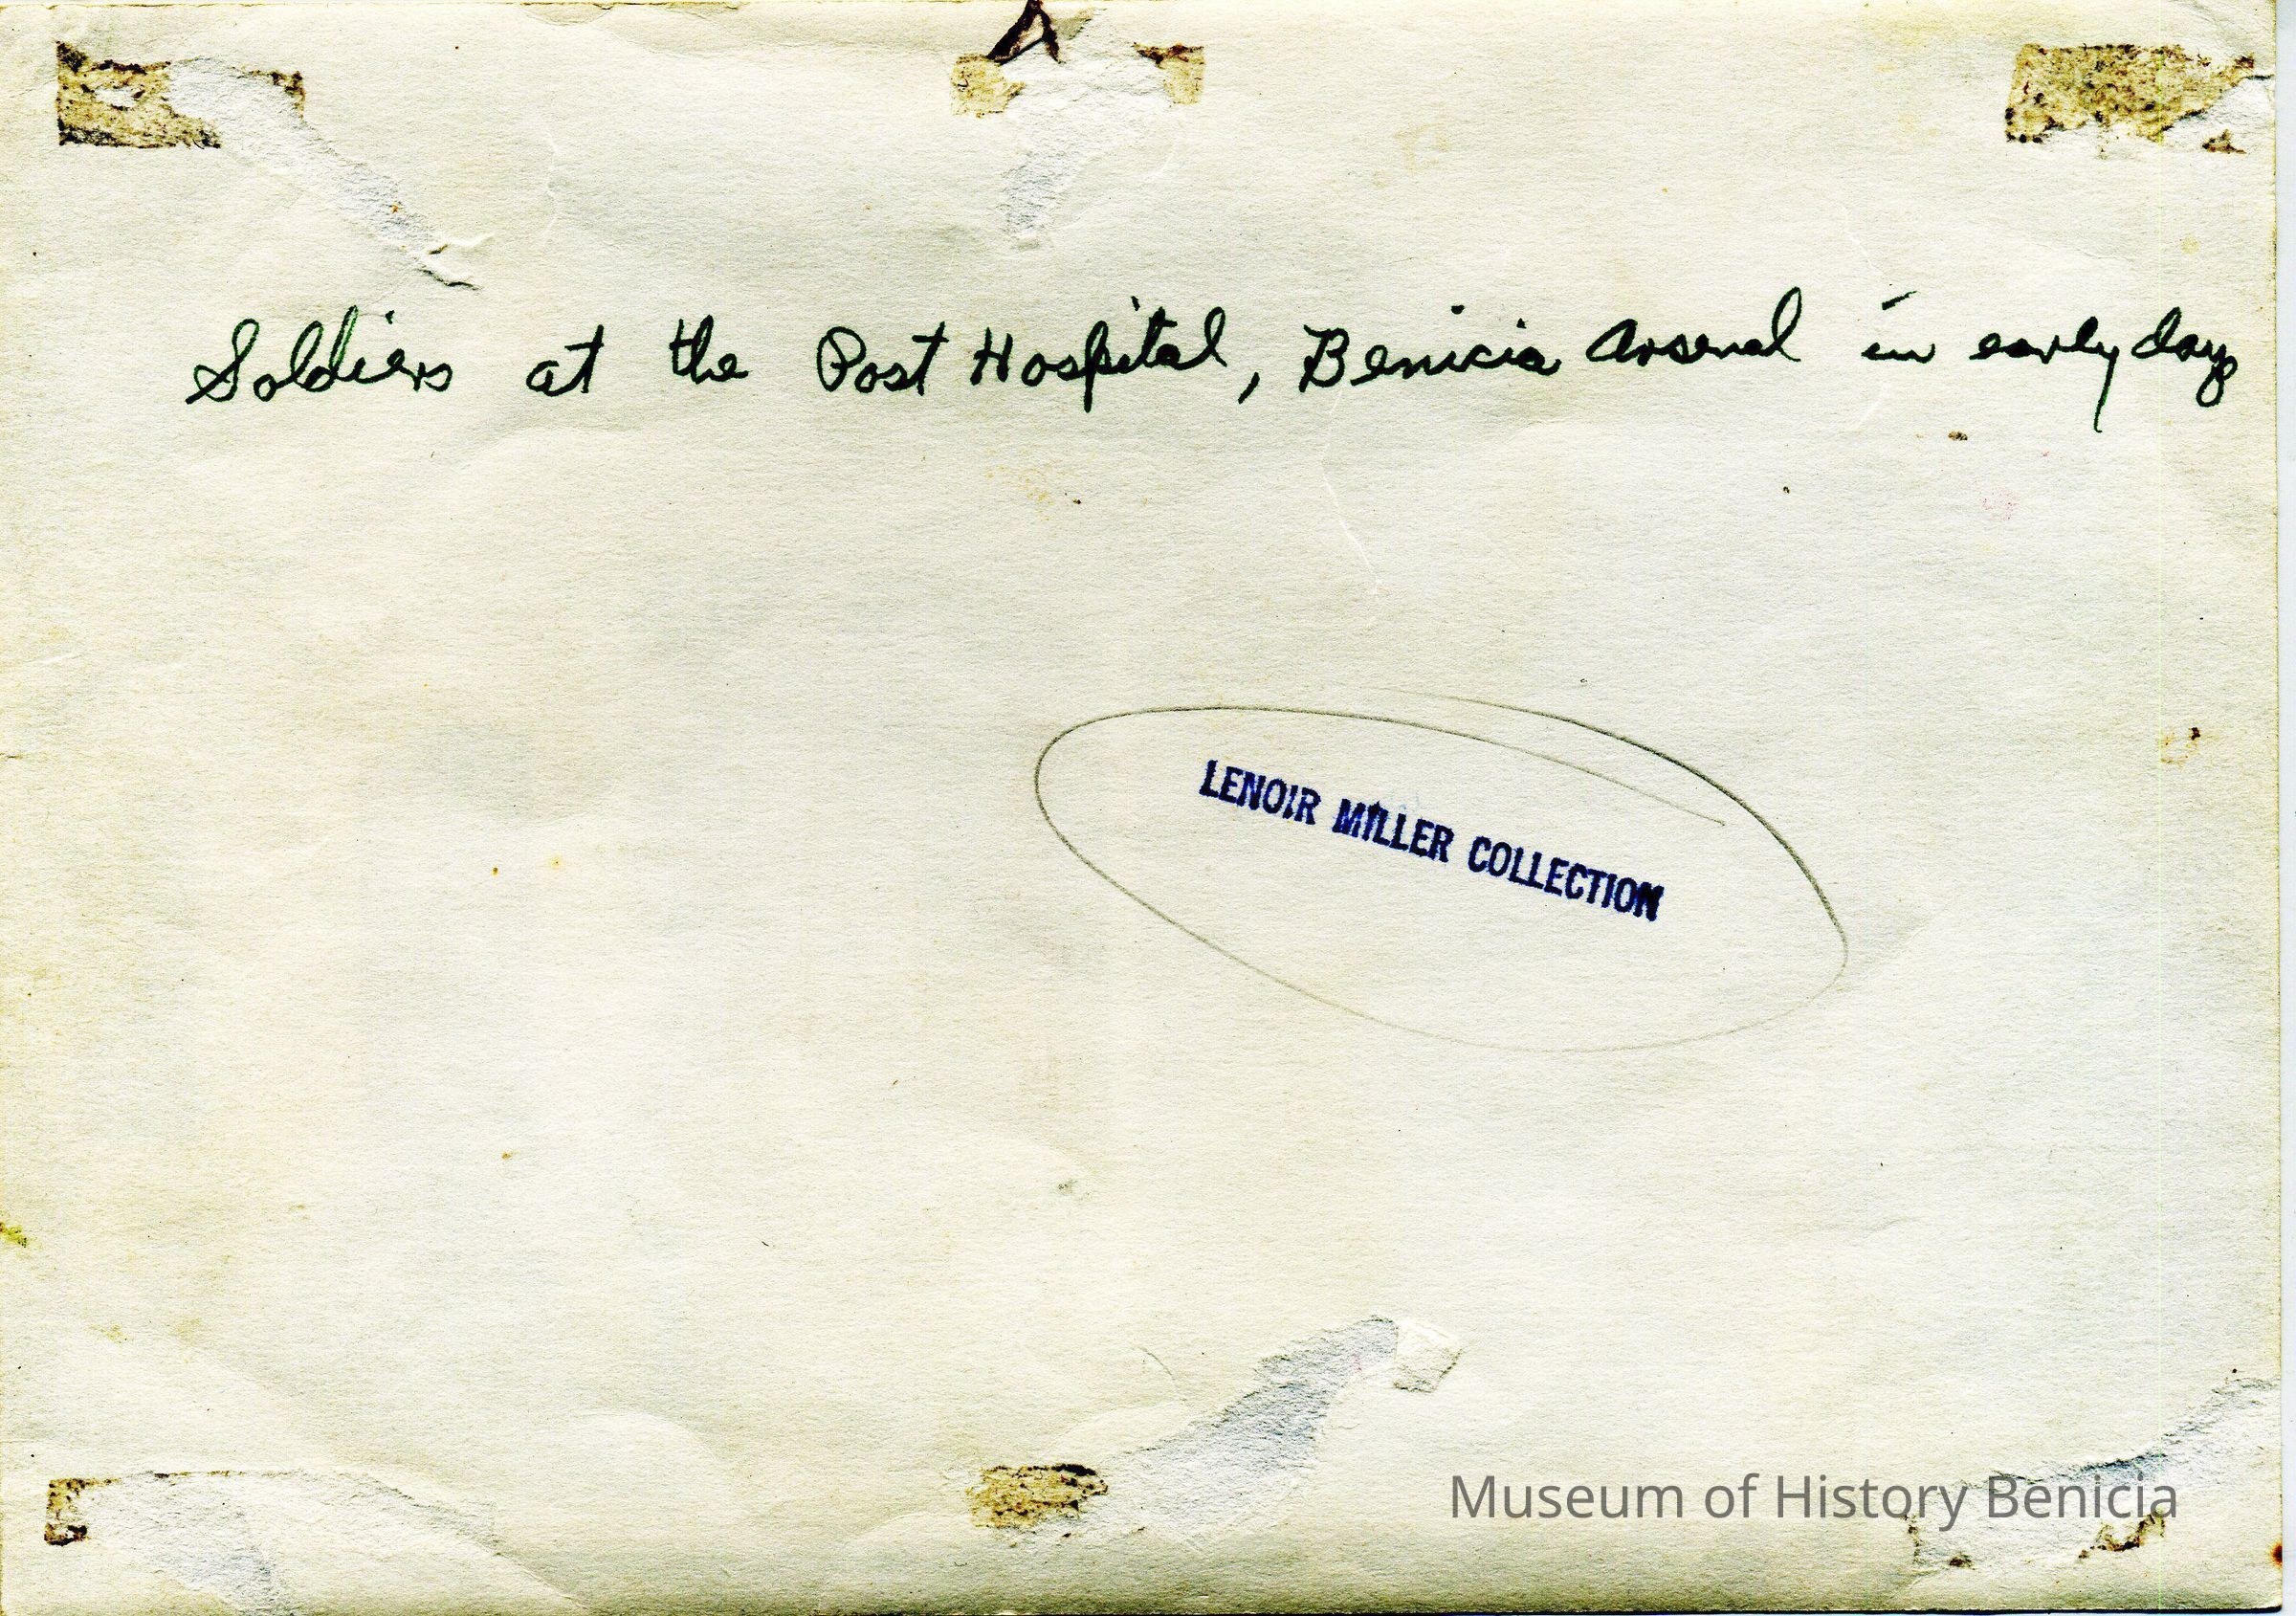 Soldiers at the Post Hospital, Benicia Arsenal in early days
LENOIR MILLER COLLECTION
Museum of History Benicia